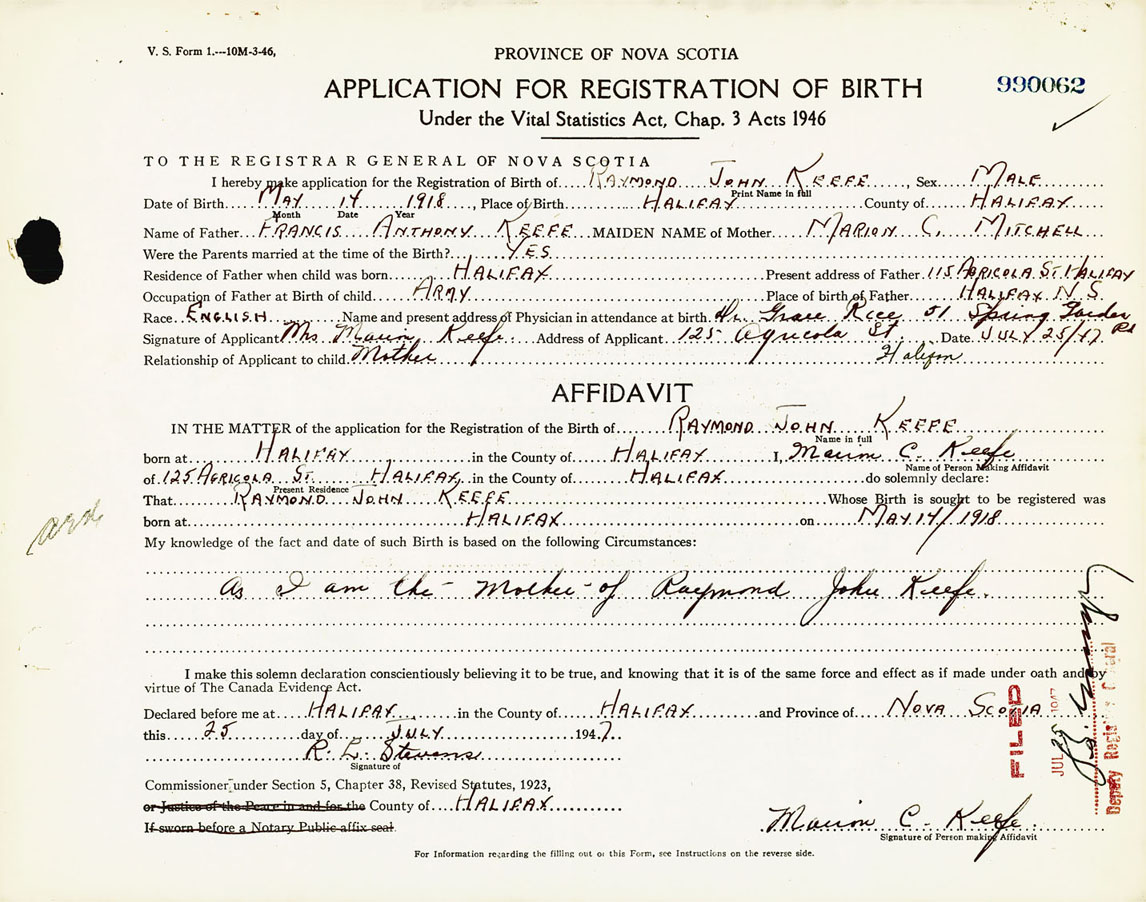 V. S. Form 1.---10M-3-46,
PROVINCE OF NOVA SCOTIA
APPLICATION FOR REGISTRATION OF BIRTH
990062
Under the Vital Statistics Act, Chap. 3 Acts 1946
TO THE REGISTRAR GENERAL OF NOVA SCOTIA
I hereby make application for the Registration of Birth of RAYMOND JOHN KEEFE, Sex MALE
Print Name in full
Date of Birth MAY 14 1918, Place of Birth HALIFAX County of HALIFAX
Month Date Year
Name of Father FRANCIS ANTHONY KEEFE MAIDEN NAME of Mother MARION C. MITCHELL
Were the Parents married at the time of the Birth? YES
Residence of Father when child was born HALIFAX Present address of Father 115 AGRICOLA ST. HALIFAX
Occupation of Father at Birth of child ARMY Place of birth of Father HALIFAX N.S.
Race ENGLISH Name and present address of Physician in attendance at birth Dr. Grace Rice 51 Spring Garden Rd
Signature of Applicant Mrs. Marion Keefe Address of Applicant 125 Agricola St. Date JULY 25/47
Relationship of Applicant to child Mother Halifax
AFFIDAVIT
IN THE MATTER of the application for the Registration of the Birth of RAYMOND JOHN KEEFE
Name in full
born at HALIFAX in the County of HALIFAX I, Marion C. Keefe
Name of Person Making Affidavit
of 125 AGRICOLA ST. HALIFAX, in the County of HALIFAX do solemnly declare:
Present Residence
That RAYMOND JOHN KEEFE Whose Birth is sought to be registered was
born at HALIFAX on MAY 14/1918
My knowledge of the fact and date of such Birth is based on the following Circumstances:
As I am the - Mother - of Raymond John Keefe.
I make this solemn declaration conscientiously believing it to be true, and knowing that it is of the same force and effect as if made under oath and by
virtue of The Canada Evidence Act.
Declared before me at HALIFAX in the County of HALIFAX and Province of NOVA SCOTIA
this 25 day of JULY 1947
R. L. Stevens
Signature of
Commissioner under Section 5, Chapter 38, Revised Statutes, 1923,
or Justice of the Peace in and for the County of HALIFAX
If sworn before a Notary Public affix seal.
Marion C. Keefe
Signature of Person making Affidavit
For Information regarding the filling out of this Form, see Instructions on the reverse side.
FILED
JUL 25 1947
Deputy Registrar General